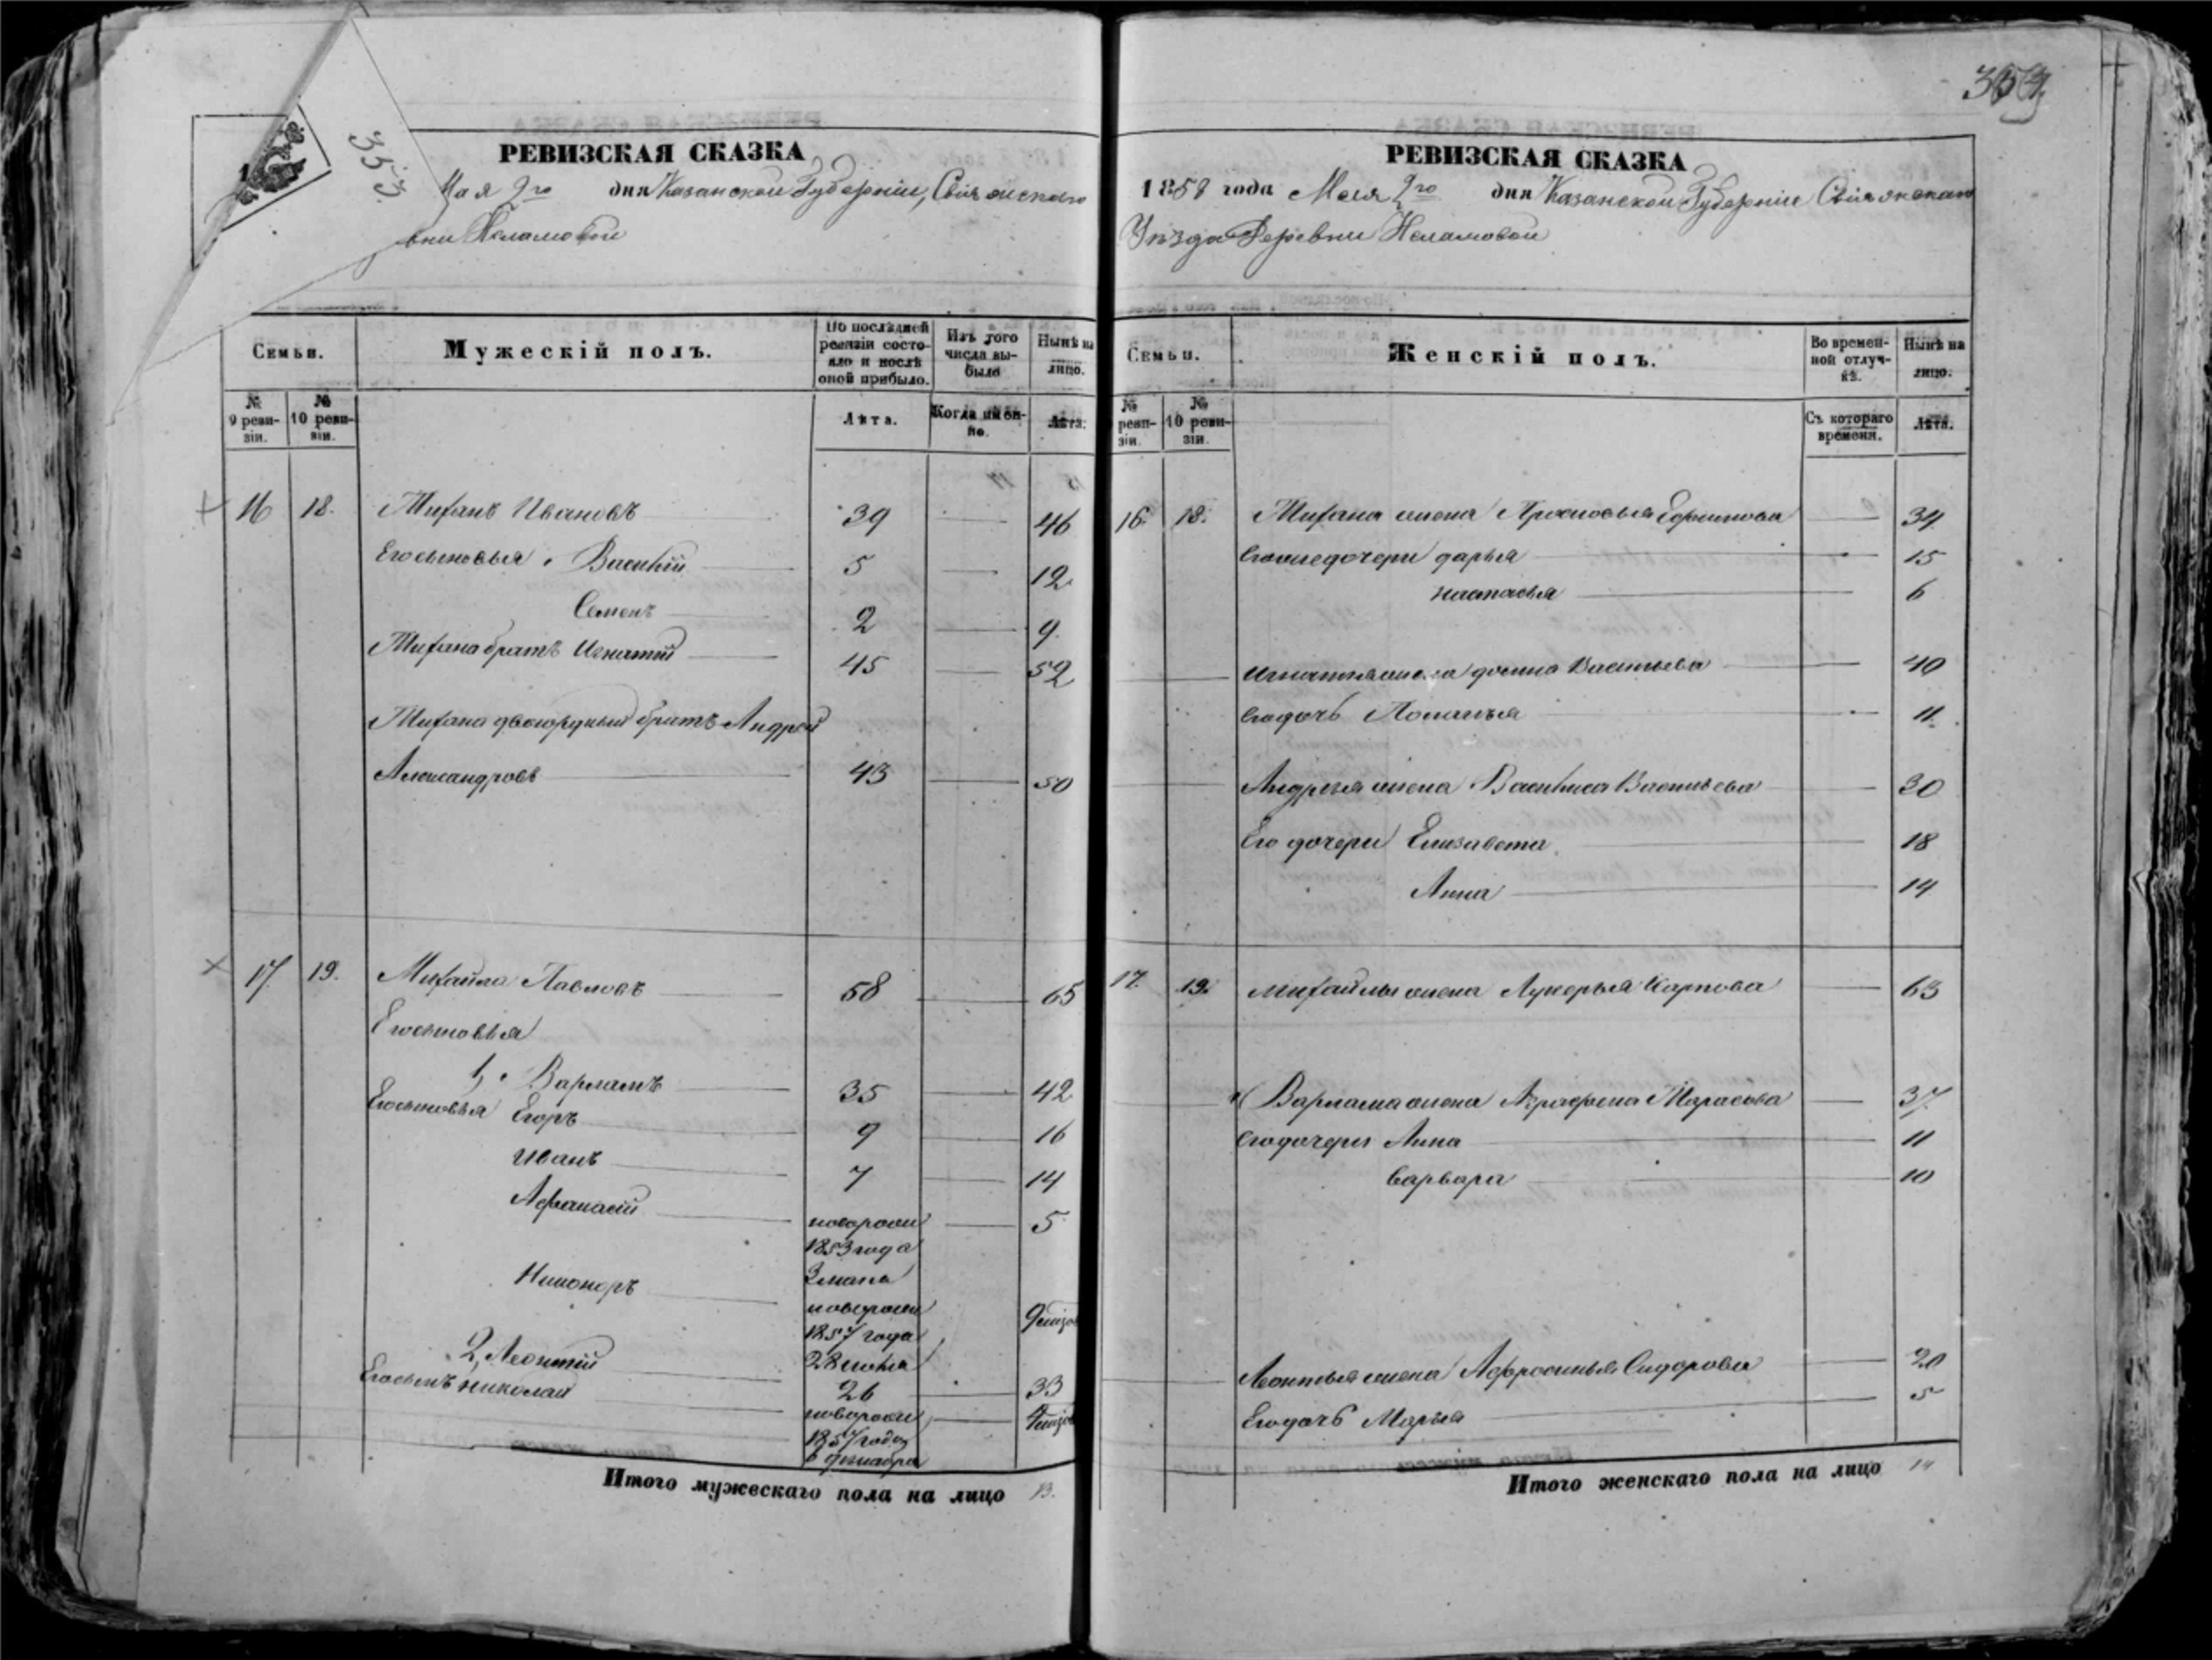 353.
РЕВИЗСКАЯ СКАЗКА
Мая 2го дня Казанской Губерніи, Свіяжскаго
вни
Семьи.
Мужескій полъ.
По послѣдней ревизіи состояло и послѣ оной прибыло.
Изъ того числа выбыло
Нынѣ на лицо.
№ 9 ревизіи.
№ 10 ревизіи.
Лѣта.
Когда именно.
Лѣта.
16 18. Ивановъ 39 46
Его сыновья Василій 5 12
Семенъ 2 9.
братъ Игнатій 45 52
двоюродный братъ Андрей
Александровъ 43 50
17. 19. Михайла Павловъ 58 65
Его сыновья
1, Варламъ 35 42
Его сыновья Егоръ 9 16
Иванъ 7 14
Афанасій новорожд 5
1853 года
Никоноръ
новорожд
1857 года
28 іюля
2, Леонтій 26 33
Его сынъ Николай новорожд
1857 года
6 декабря
Итого мужескаго пола на лицо 13.
РЕВИЗСКАЯ СКАЗКА
1858 года Мая 2го дня Казанской Губерніи Свіяжскаго
Уѣзда Деревни
Семьи.
Женскій полъ.
Во временной отлучкѣ.
Нынѣ на лицо.
№ ревизіи.
№ 10 ревизіи.
Съ котораго времени.
Лѣта.
16. 18. жена 34
дочери дарья 15
настасья 6
Игнатья жена Васильева 40
Его дочь 11.
Андрея жена Василиса Васильева 30
Его дочери Елизавета 18
Анна 14
17. 19. Михайлы жена Лукерья Карпова 63
Варлама жена Аграфена Тарасова 37
Его дочери Анна 11
Варвара 10
Леонтья жена Афросинья Сидорова
Его дочь Марья 5
Итого женскаго пола на лицо 14